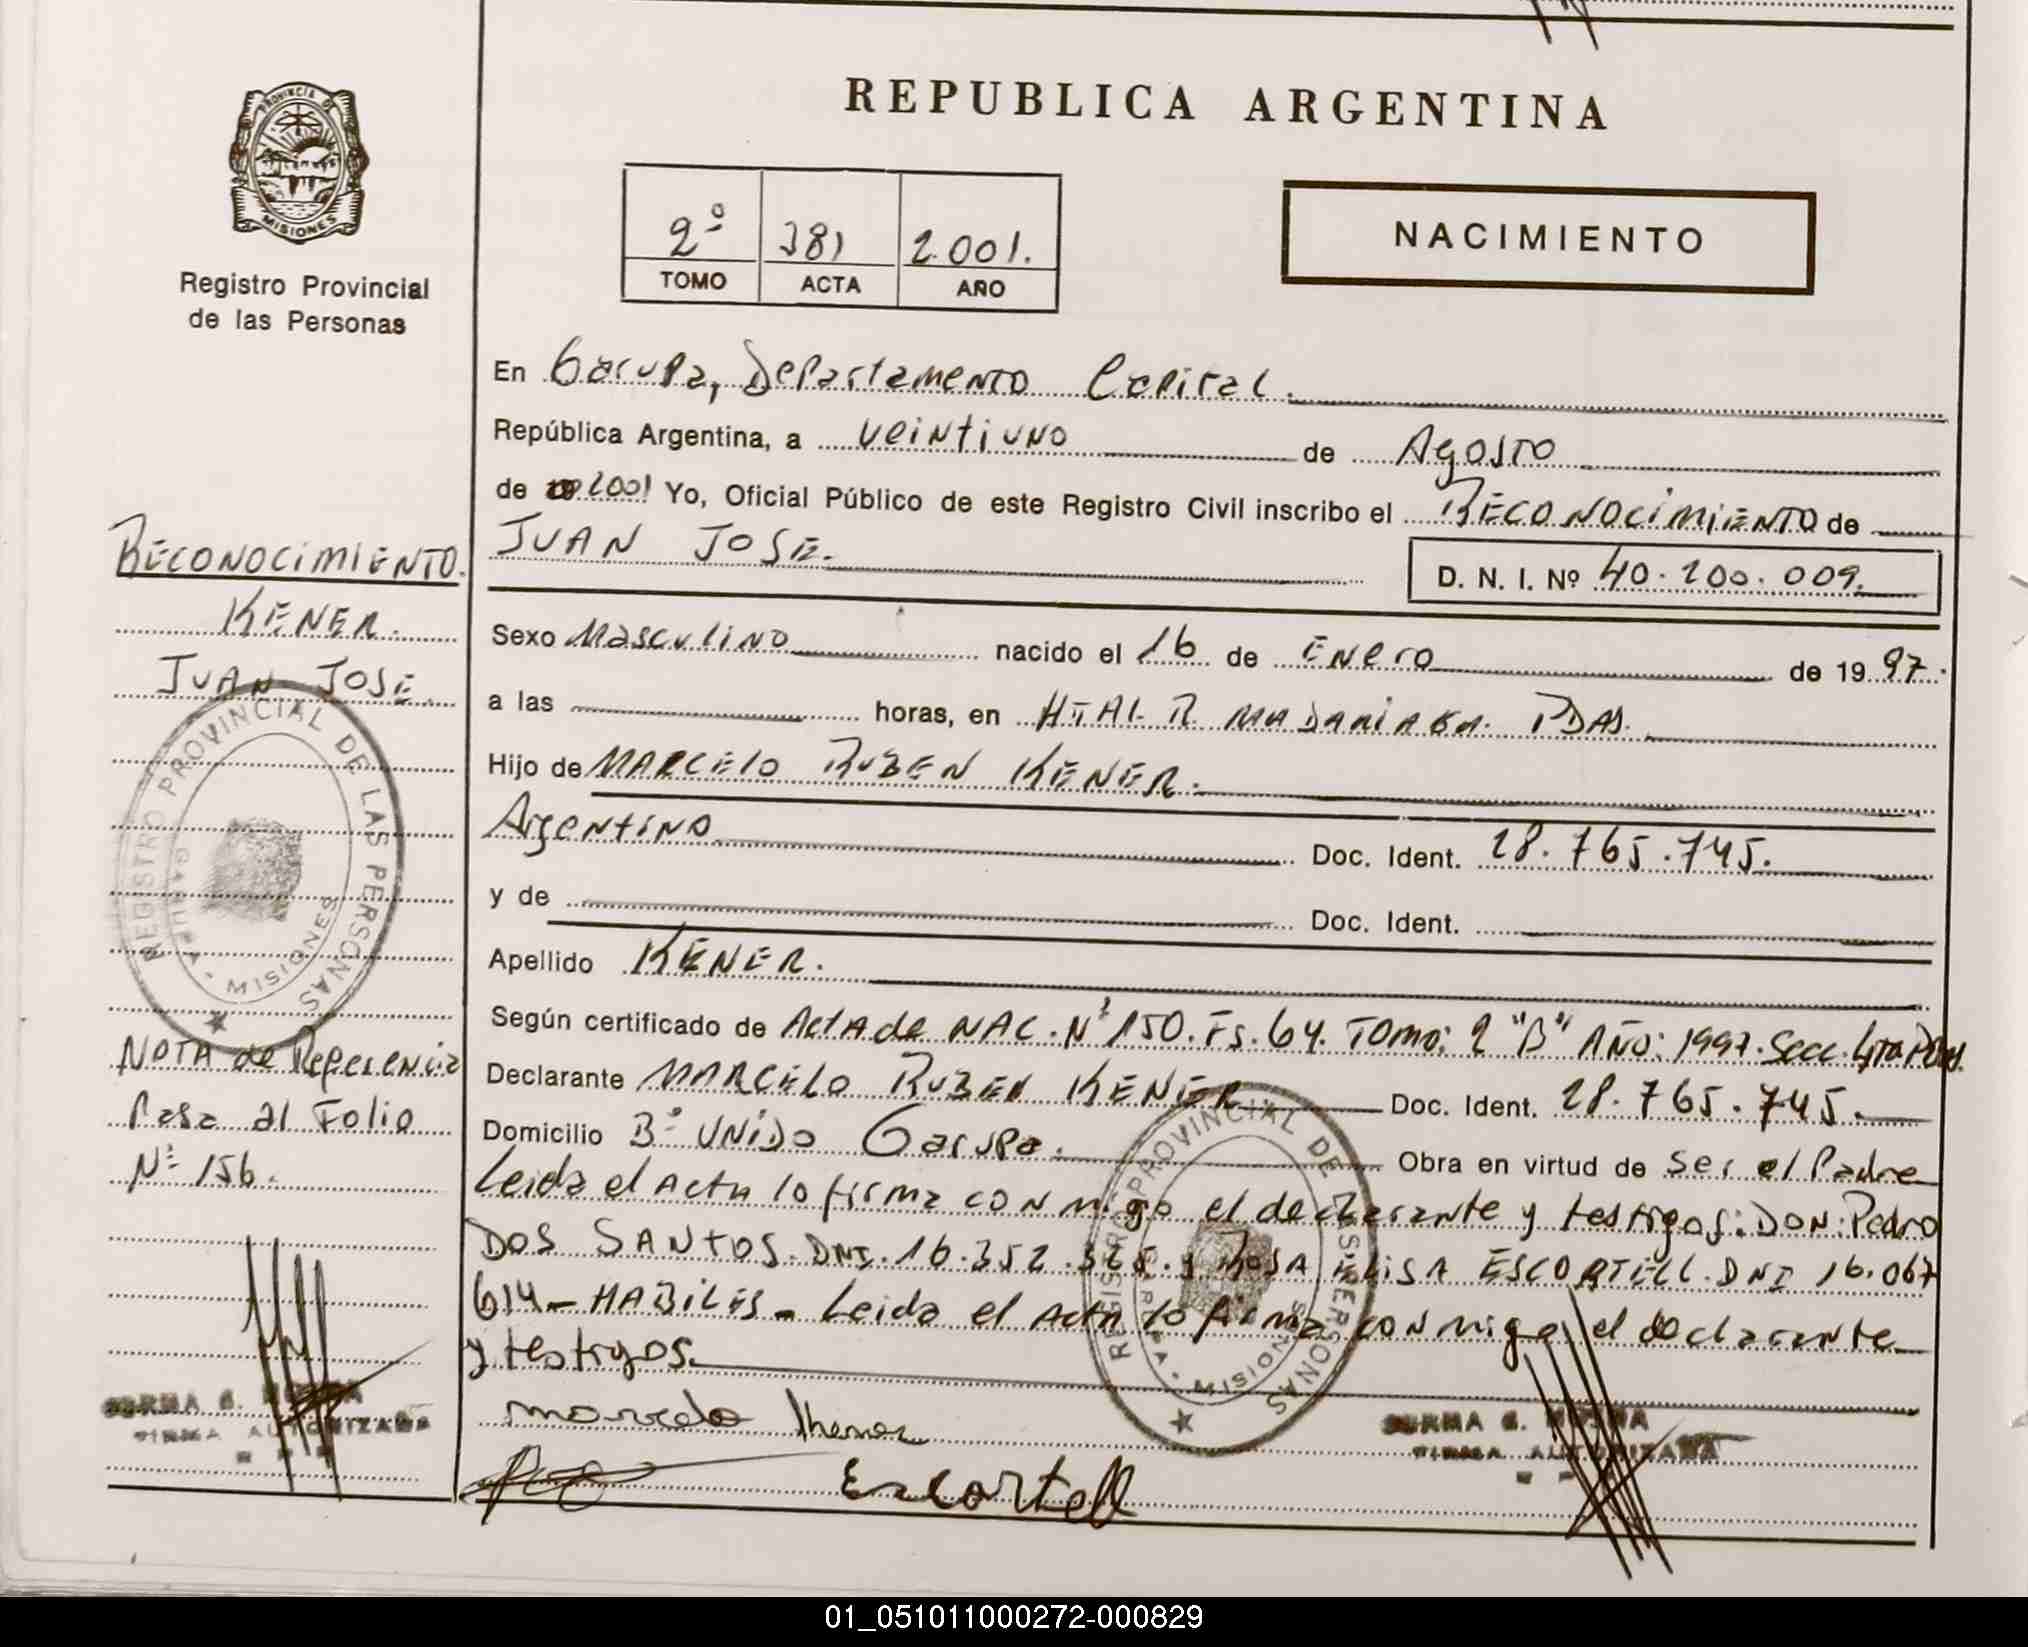 REPUBLICA ARGENTINA
PROVINCIA DE
MISIONES
Registro Provincial
de las Personas
2º 381 2.001.
TOMO ACTA AÑO
NACIMIENTO
En Garupa, Departamento Capital.
República Argentina, a veintiuno de Agosto
de 2001 Yo, Oficial Público de este Registro Civil inscribo el RECONOCIMIENTO de
JUAN JOSE.
D. N. I. Nº 40.200.009.
Sexo Masculino nacido el 16 de Enero de 1997.
a las horas, en HTAL R MADARIAGA PDAS.
Hijo de MARCELO RUBEN KENER.
Argentino Doc. Ident. 28.765.745.
y de Doc. Ident.
Apellido KENER.
Según certificado de Acta de NAC. Nº 150. Fs. 64. TOMO: 2 "B" AÑO: 1997. Secc. 4ta Pdas.
Declarante MARCELO RUBEN KENER Doc. Ident. 28.765.745.
Domicilio Bº UNIDO Garupa. Obra en virtud de ser el Padre
Leida el Acta lo firma conmigo el declarante y testigos: DON: Pedro
DOS SANTOS. DNI. 16.352.325. y ROSA ELISA ESCORTELL. DNI 16.067
614 - HABILES - Leida el Acta lo firma conmigo el declarante
y testigos.
Escortell
FIRMA AUTORIZADA
RECONOCIMIENTO.
KENER.
JUAN JOSE.
REGISTRO PROVINCIAL DE LAS PERSONAS
GARUPA - MISIONES
NOTA de Referencia
Pasa al Folio
Nº 156.
FIRMA AUTORIZADA
REGISTRO PROVINCIAL DE LAS PERSONAS
GARUPA - MISIONES
01_051011000272-000829